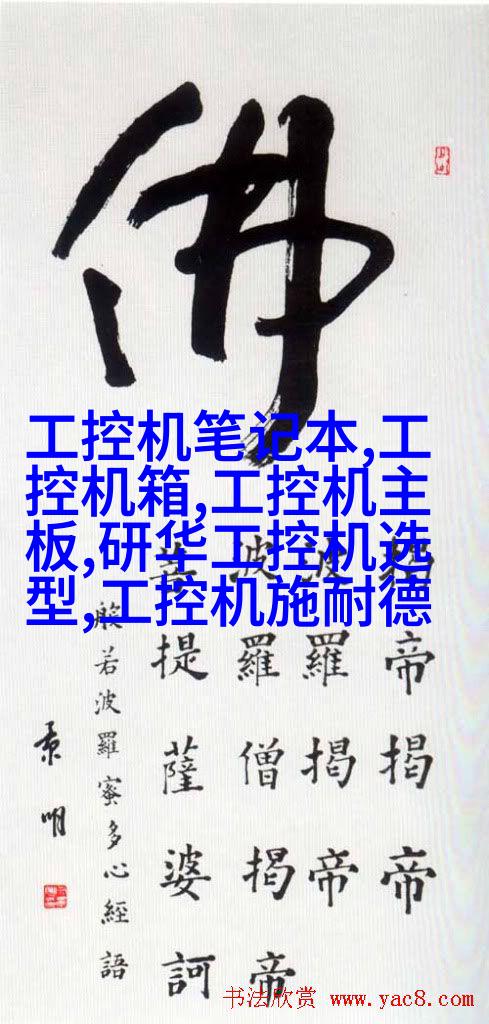 佛
工控机笔记本,工
控机箱,工控机主
板,研华工控机选
型,工控机施耐德
揭帝揭帝
波羅揭帝
波羅僧揭帝
菩提薩婆訶
般若波羅蜜多心經語
明
书法欣赏 www.yac8.com